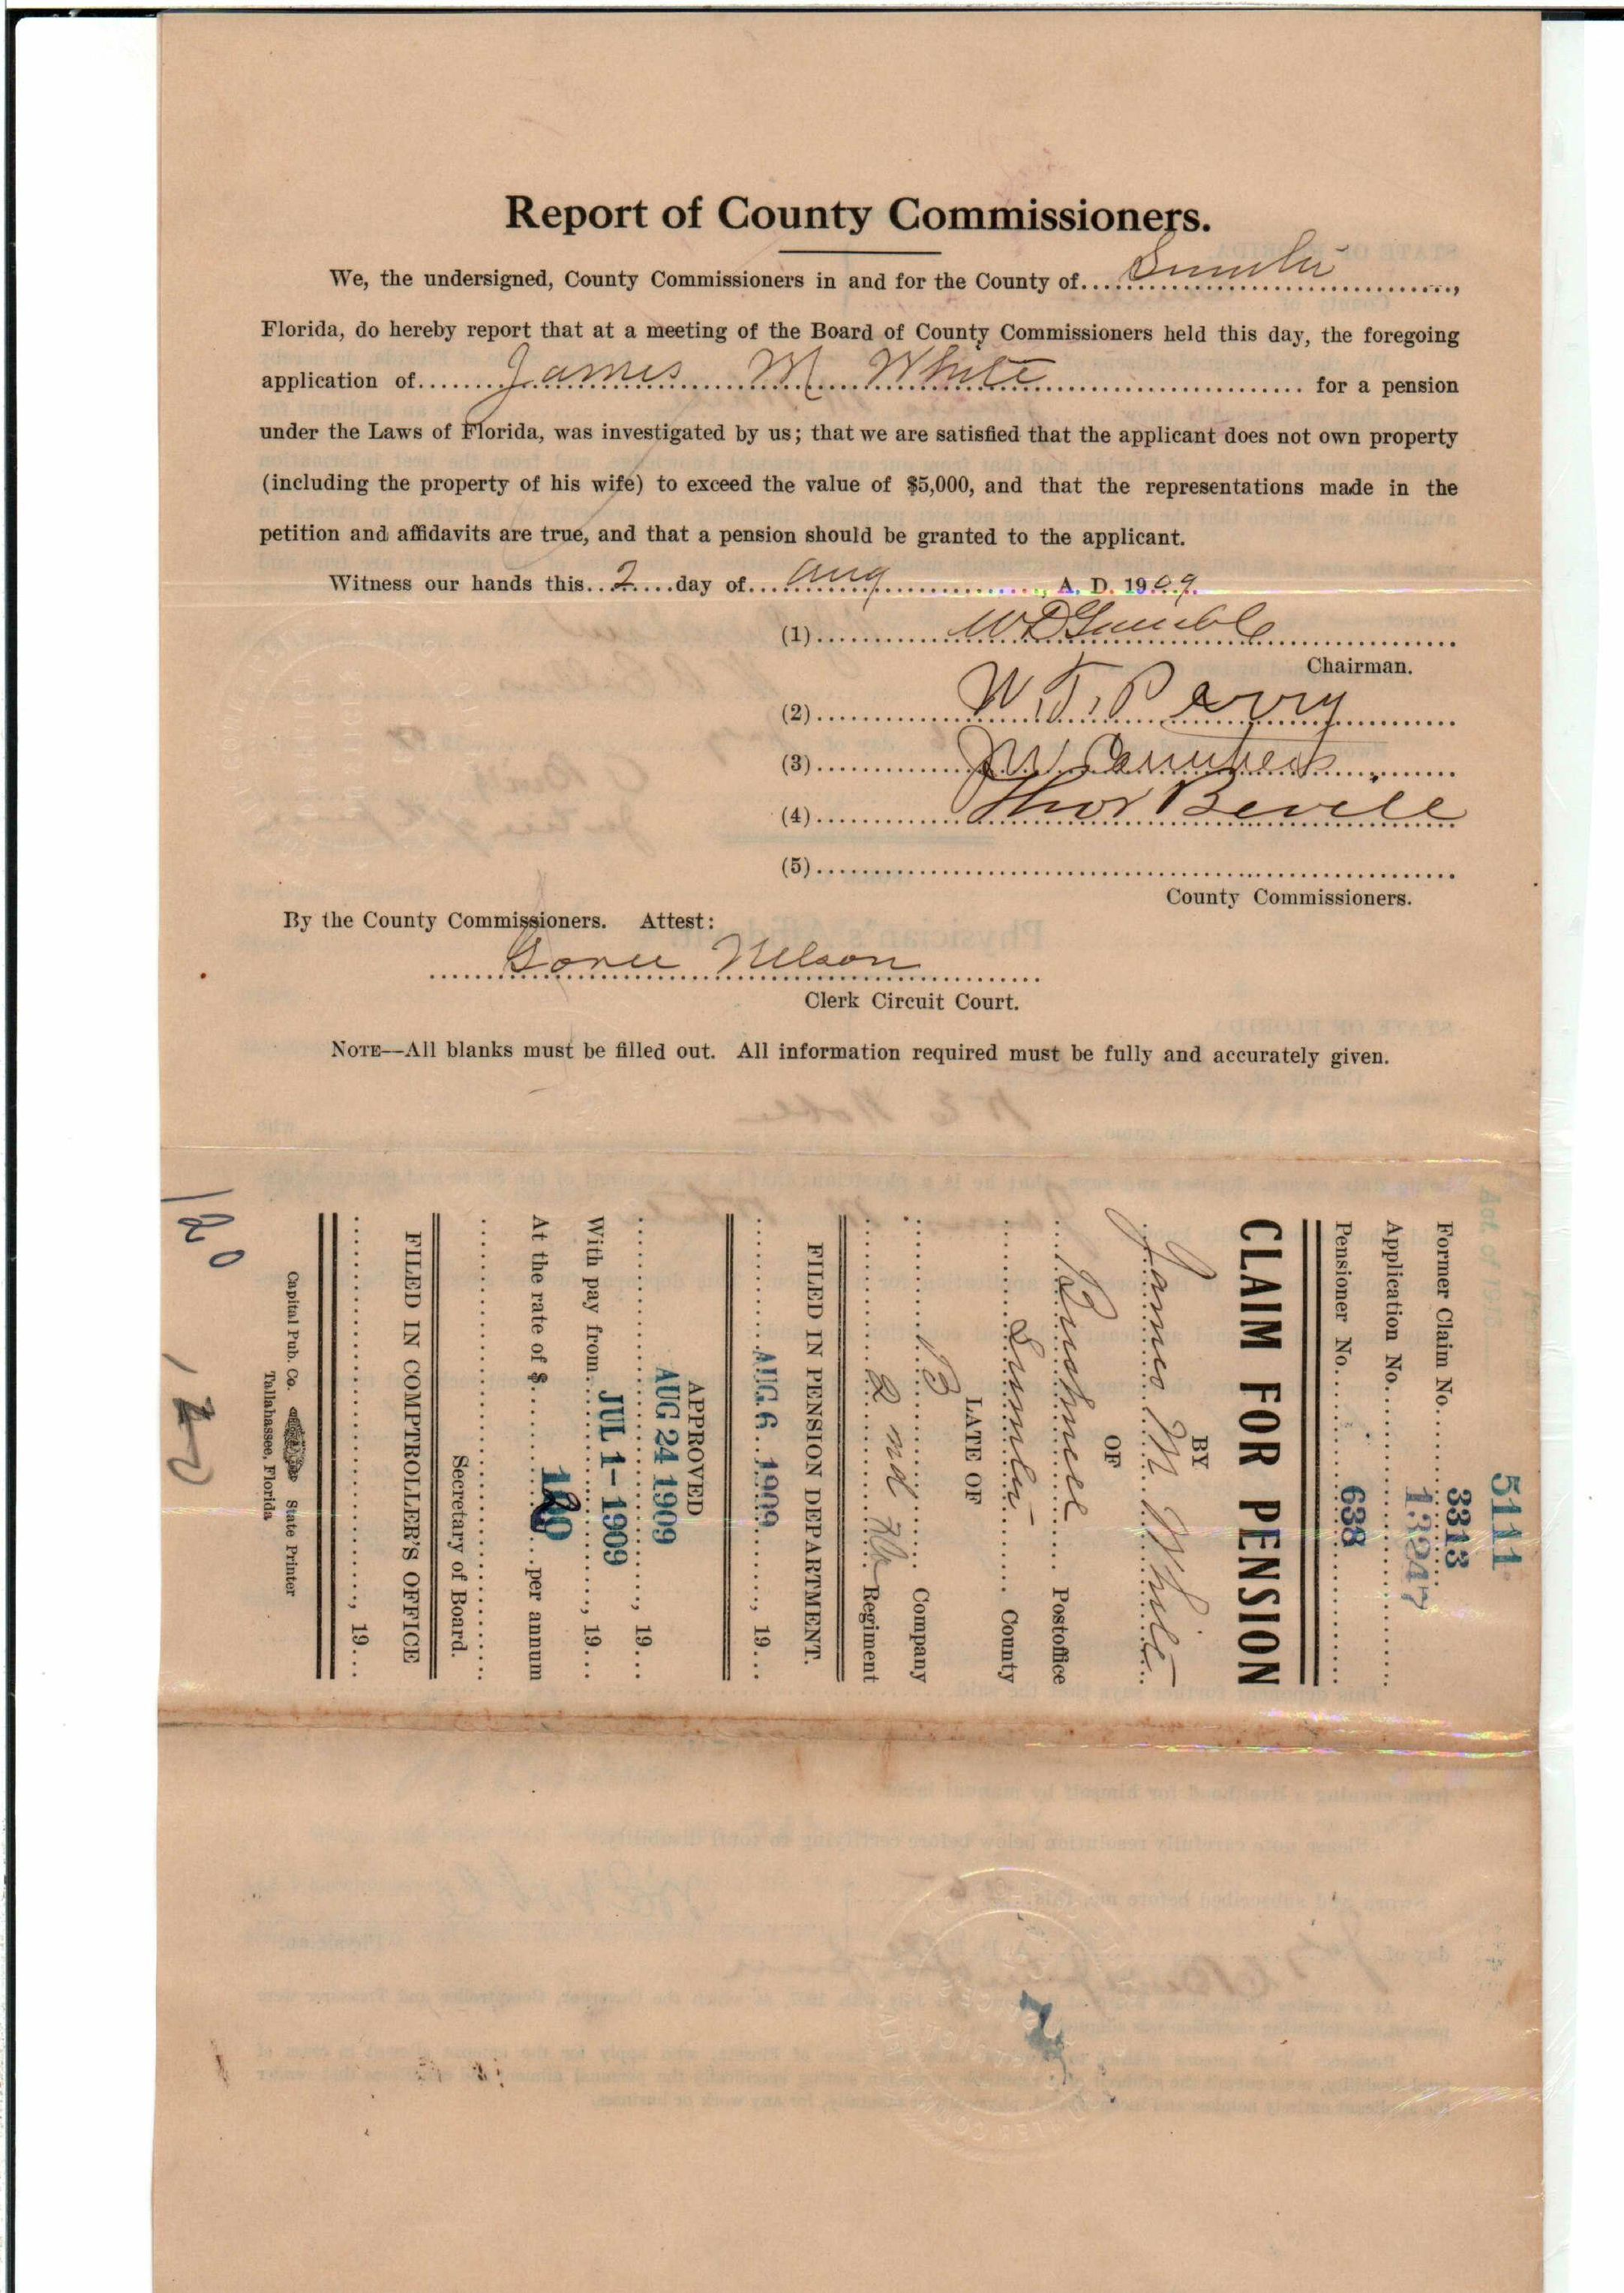 Report of County Commissioners.
We, the undersigned, County Commissioners in and for the County of Sumter,
Florida, do hereby report that at a meeting of the Board of County Commissioners held this day, the foregoing
application of James M White for a pension
under the Laws of Florida, was investigated by us; that we are satisfied that the applicant does not own property
(including the property of his wife) to exceed the value of $5,000, and that the representations made in the
petition and affidavits are true, and that a pension should be granted to the applicant.
Witness our hands this 2 day of Aug, A. D. 1909.
(1)
Chairman.
(2) W. T. Perry
(3)
(4) Thos Bevill
(5)
County Commissioners.
By the County Commissioners. Attest:
Nelson
Clerk Circuit Court.
NOTE—All blanks must be filled out. All information required must be fully and accurately given.
5111
Former Claim No. 3313
Application No. 13247
Pensioner No. 638
CLAIM FOR PENSION
BY
James M White
OF
Bushnell Postoffice
Sumter County
LATE OF
B Company
2nd Fla Regiment
FILED IN PENSION DEPARTMENT.
AUG 6 1909, 19
APPROVED
AUG 24 1909, 19
With pay from JUL 1-1909, 19
At the rate of $ per annum
Secretary of Board.
FILED IN COMPTROLLER'S OFFICE
, 19
Capital Pub. Co. State Printer
Tallahassee, Florida
120